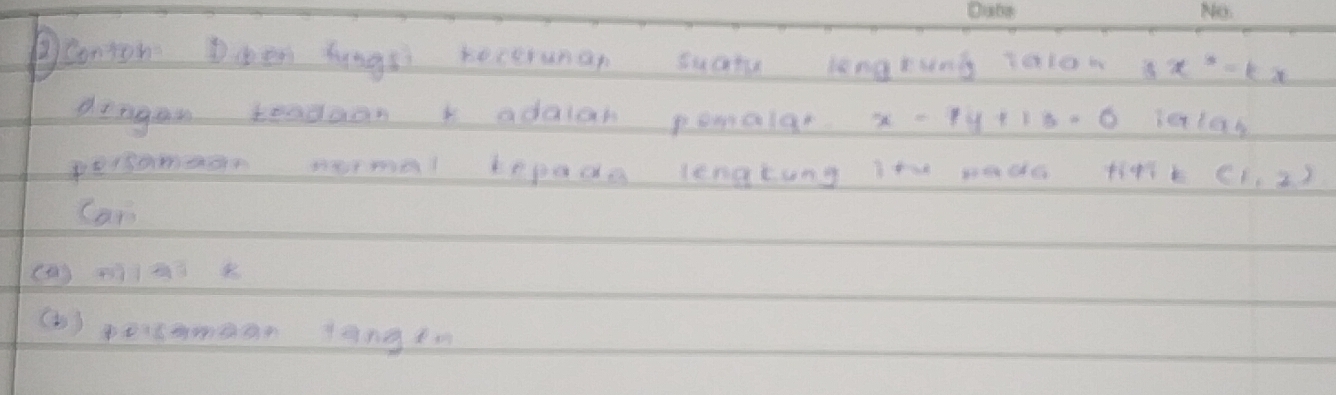 Date No.
2) Contoh Diberi fungsi kecerunan suatu lengkung ialah 3x² - kx
dengan keadaan k adalah pemalar. x - 7y + 13 = 0 ialah
persamaan normal kepada lengkung itu pada titik (1, 2)
Cari
(a) nilai k
(b) persamaan tangen